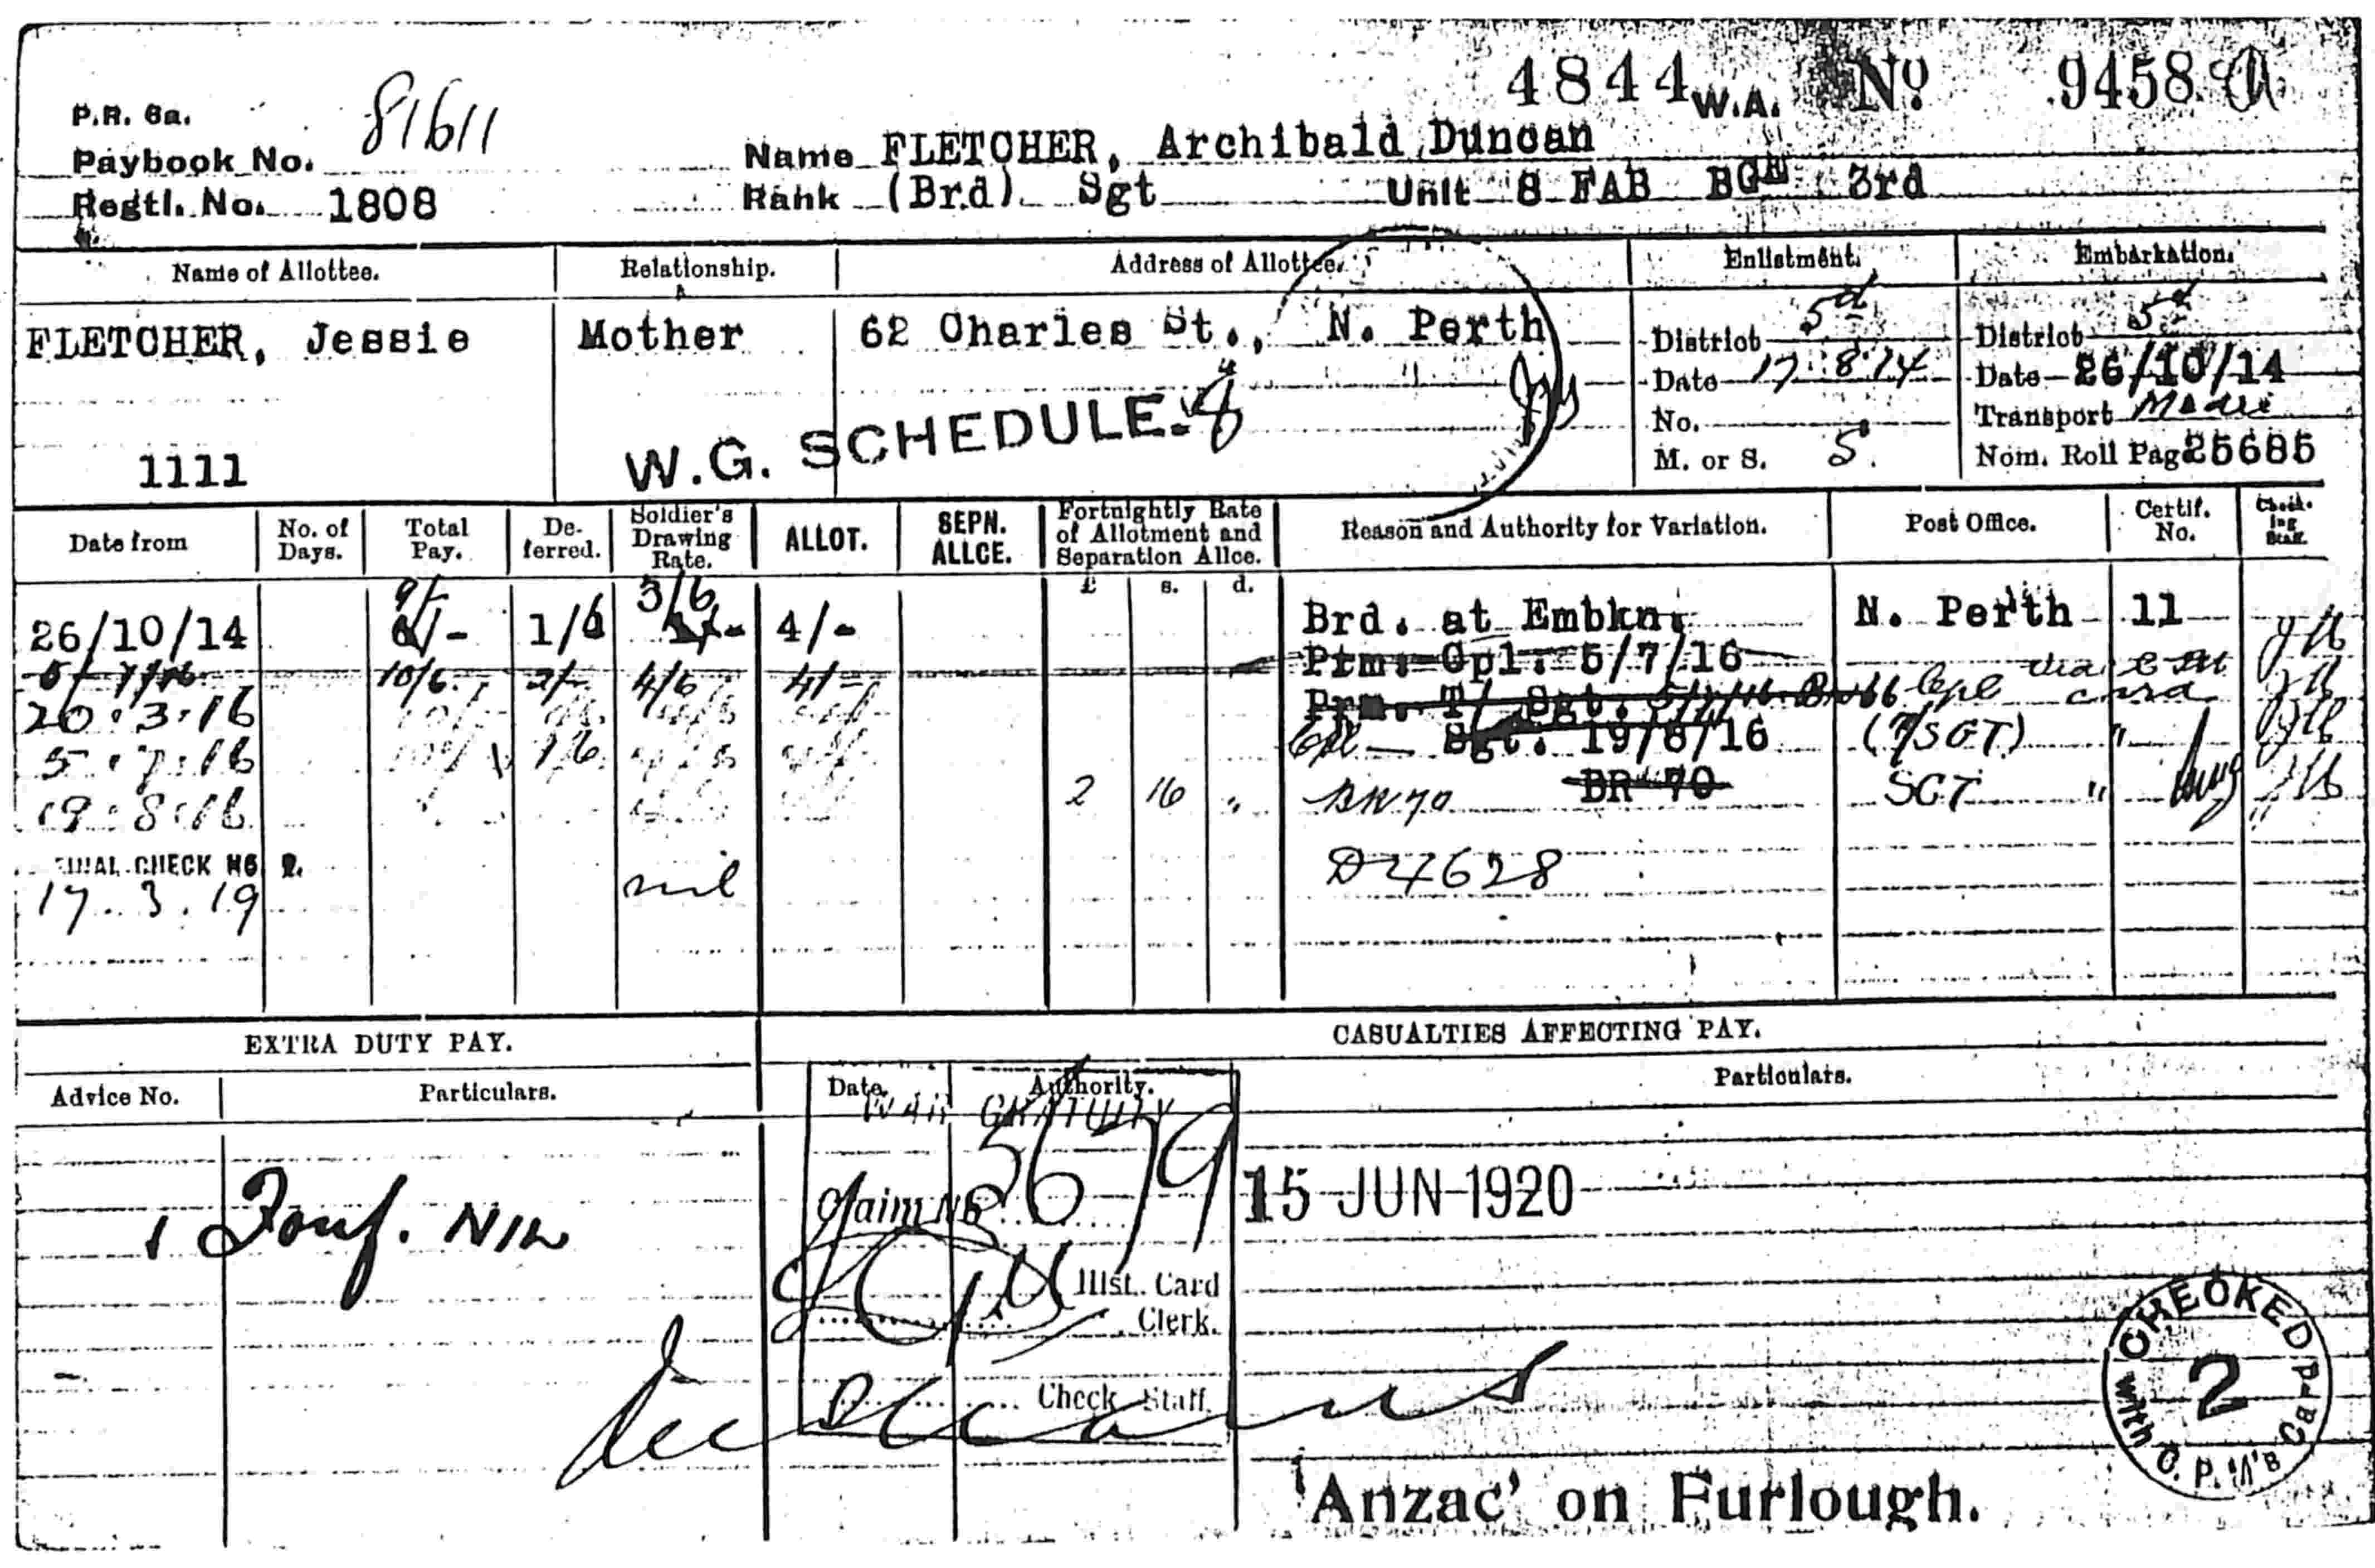 4844 W.A. Nº 9458
P.R. 6a.
Paybook No. 81611
Name FLETCHER, Archibald Duncan
Regtl. No. 1808
Rank (Brd) Sgt Unit 8 FAB BGM 3rd
Name of Allottee. Relationship. Address of Allottee. Enlistment. Embarkation.
FLETCHER, Jessie Mother 62 Charles St., N. Perth
District 5d District 5d
Date 17.8.14 Date 26/10/14
No. Transport Medic
1111 W.G. SCHEDULE. 8 M. or S. S. Nom. Roll Page 25685
Date from No. of Days. Total Pay. Deferred. Soldier's Drawing Rate. ALLOT. SEPN. ALLCE. Fortnightly Rate of Allotment and Separation Allce. Reason and Authority for Variation. Post Office. Certif. No. Checking Staff.
£ s. d.
26/10/14 9/- 1/6 3/6 4/- Brd. at Embkn. N. Perth 11
5/7/16 10/6 2/- 4/6 4/- Prm. Cpl. 5/7/16
20.3.16 Prm. T/ Sgt. Cpl via card
5.7.16 1/6 Sgt. 19/8/16 (T/SGT) "
19.8.16 2 16 " BR 70 BR 70 SGT "
FINAL CHECK No 2.
D4628
17.3.19 nil
EXTRA DUTY PAY. CASUALTIES AFFECTING PAY.
Advice No. Particulars. Date. Authority. Particulars.
WAR GRATUITY
Claim No 3679 15 JUN 1920
1
Illst. Card
Clerk.
Check Staff.
CHECKED with C.P.M's Card
2
'Anzac' on Furlough.